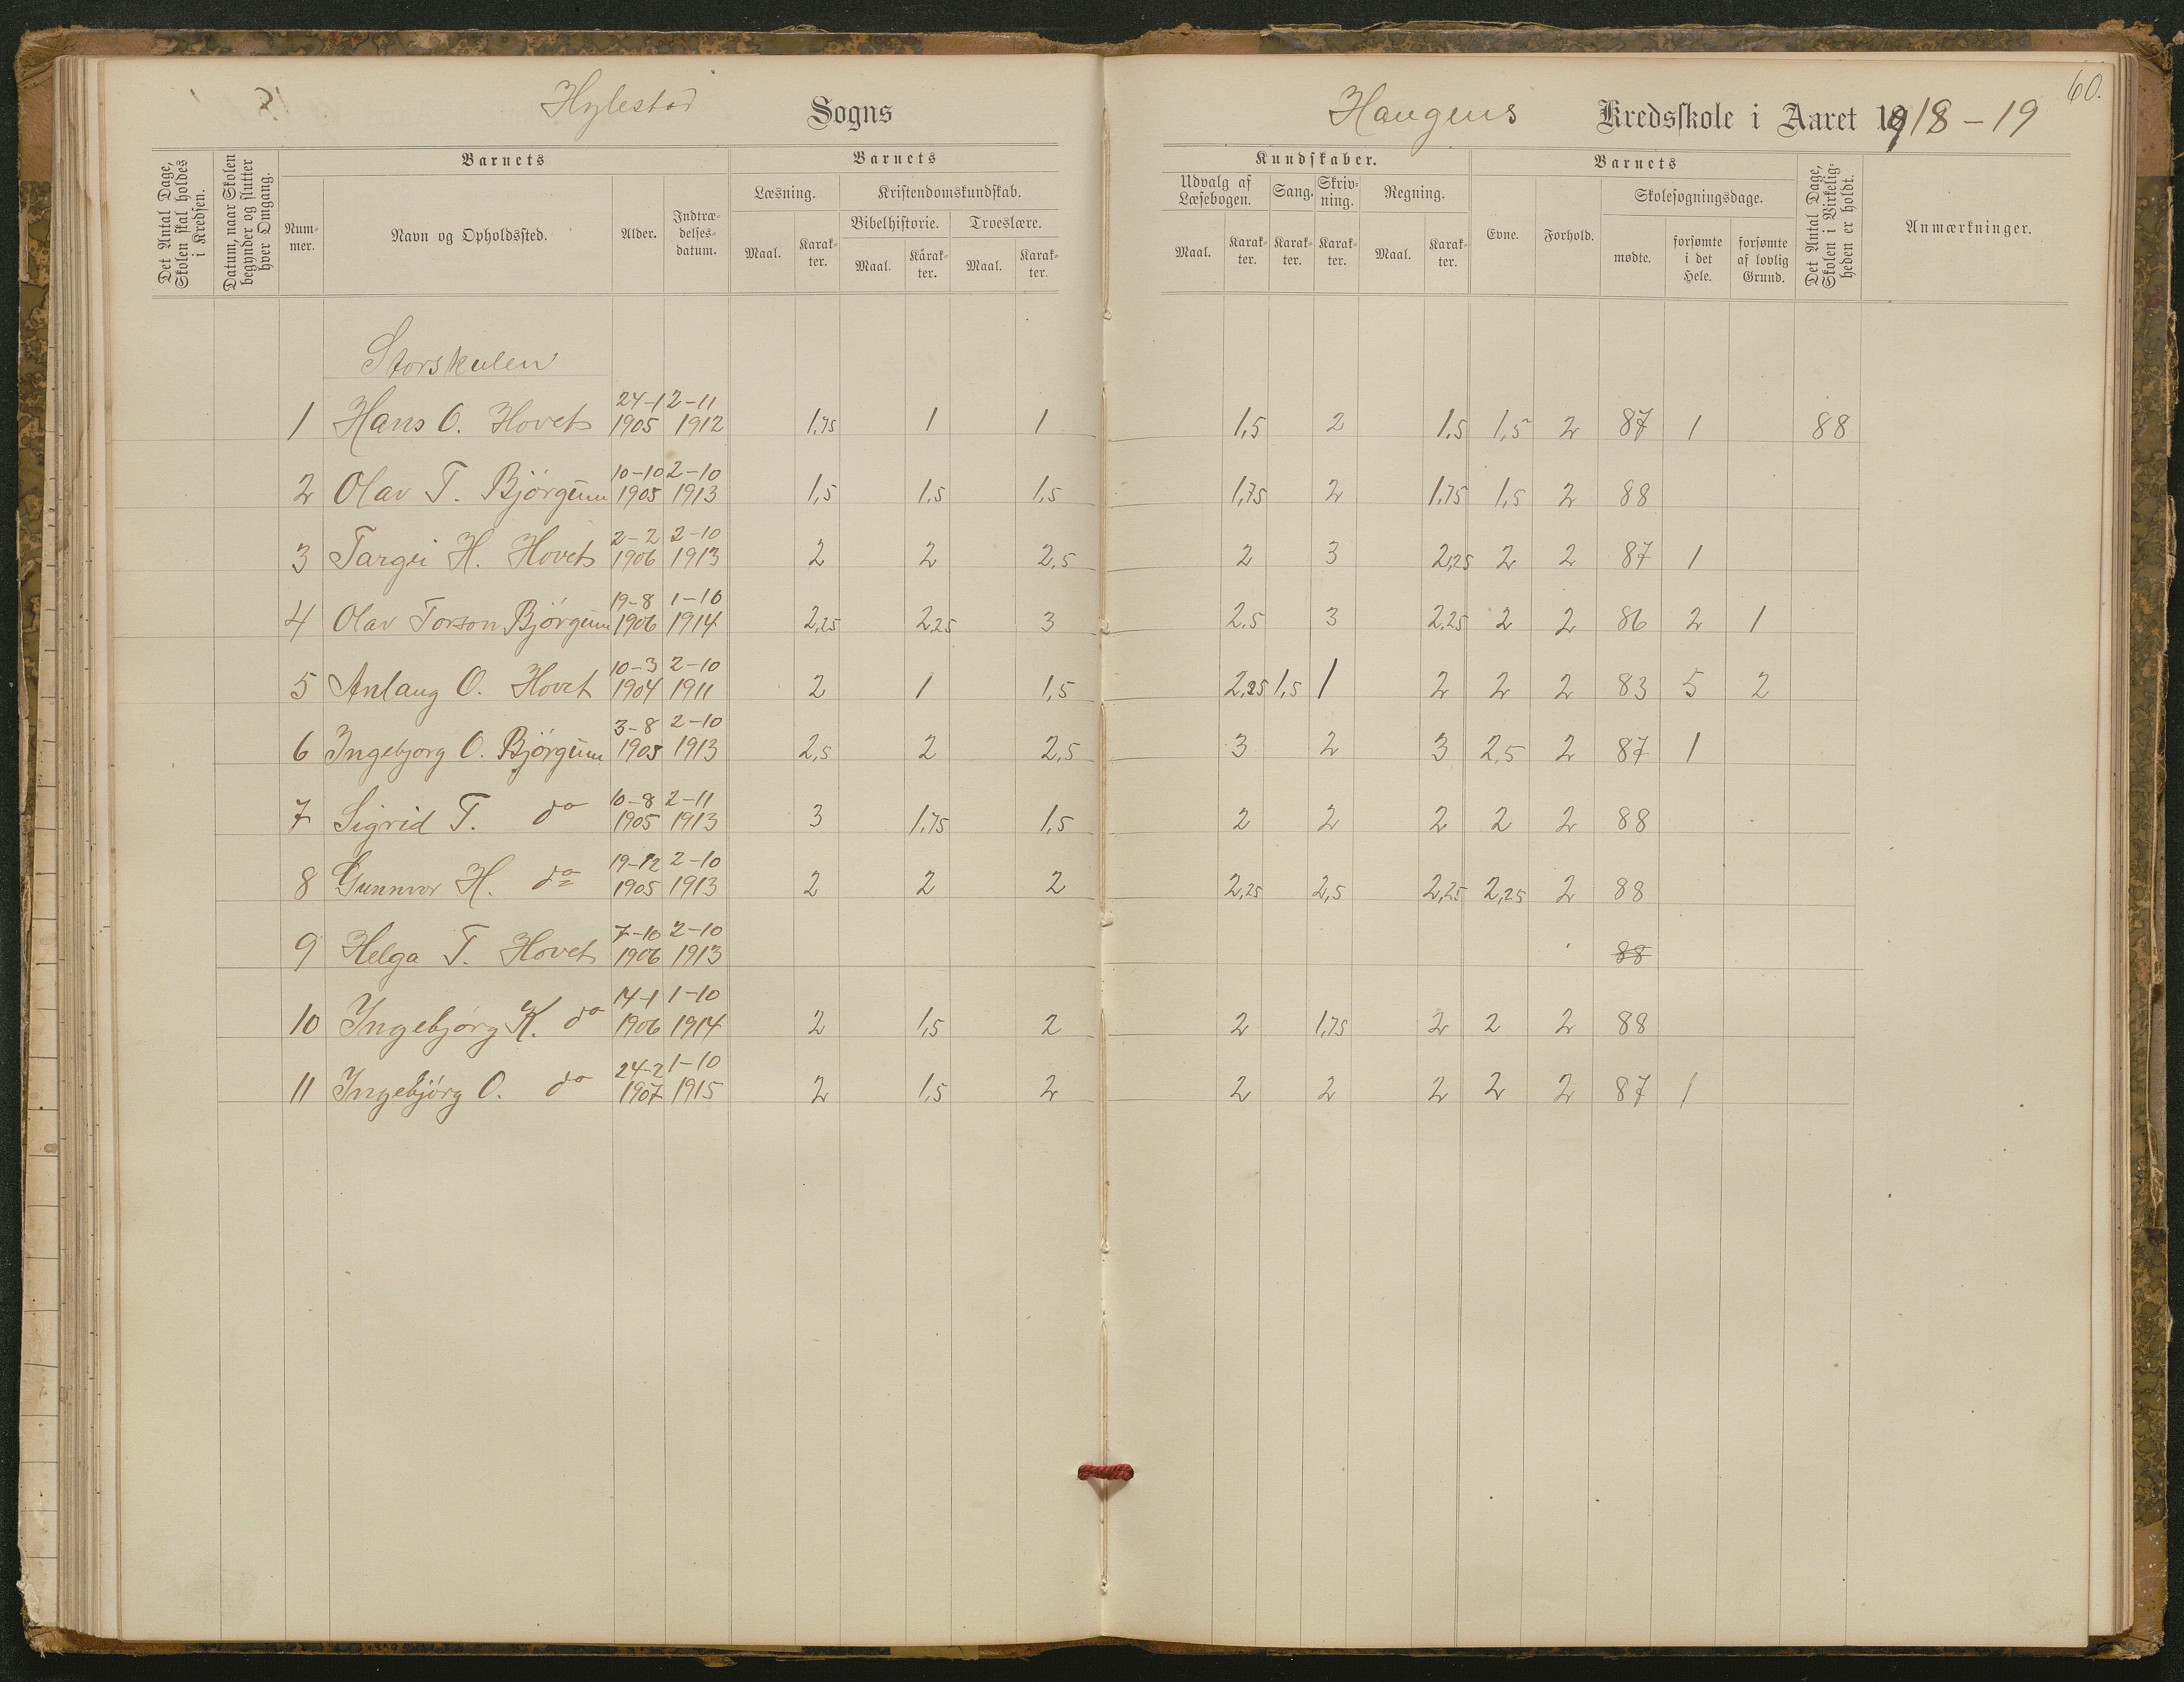 60.
Hylestad Sogns Haugens Kredsskole i Aaret 1918-19
Det Antal Dage, Skolen skal holdes i Kredsen.
Datum, naar Skolen begynder og slutter hver Omgang.
Barnets
Nummer.
Navn og Opholdssted.
Alder.
Indtrædelsesdatum.
Barnets
Læsning.
Maal. Karakter.
Kristendomskundskab.
Bibelhistorie. Troeslære.
Maal. Karakter. Maal. Karakter.
Kundskaber.
Udvalg af Læsebogen. Sang. Skrivning. Regning.
Maal. Karakter. Karakter. Karakter. Maal. Karakter.
Barnets
Evne. Forhold.
Skolesøgningsdage.
mødte. forsømte i det Hele. forsømte af lovlig Grund.
Det Antal Dage, Skolen i Virkeligheden er holdt.
Anmærkninger.
Storskulen
24-1 2-11
1 Hans O. Hovet 1905 1912 1,75 1 1 1,5 2 1,5 1,5 2 87 1 88
10-10 2-10
2 Olav T. Bjørgum 1905 1913 1,5 1,5 1,5 1,75 2 1,75 1,5 2 88
2-2 2-10
3 Targei H. Hovet 1906 1913 2 2 2,5 2 3 2,25 2 2 87 1
19-8 1-10
4 Olav Torson Bjørgum 1906 1914 2,25 2,25 3 2,5 3 2,25 2 2 86 2 1
10-3 2-10
5 Anlaug O. Hovet 1904 1911 2 1 1,5 2,25 1,5 1 2 2 2 83 5 2
3-8 2-10
6 Ingebjorg O. Bjørgum 1905 1913 2,5 2 2,5 3 2 3 2,5 2 87 1
10-8 2-11
7 Sigrid T. do 1905 1913 3 1,75 1,5 2 2 2 2 2 88
19-12 2-10
8 Gunnvor H. do 1905 1913 2 2 2 2,25 2,5 2,25 2,25 2 88
7-10 2-10
9 Helga T. Hovet 1906 1913 88
14-1 1-10
10 Ingebjørg K. do 1906 1914 2 1,5 2 2 1,75 2 2 2 88
24-2 1-10
11 Ingebjørg O. do 1907 1915 2 1,5 2 2 2 2 2 2 87 1